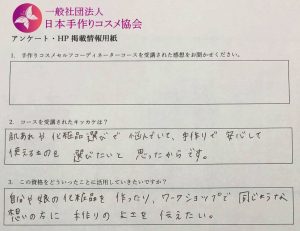 一般社団法人
日本手作りコスメ協会
アンケート・HP 掲載情報用紙
1. 手作りコスメセルフコーディネーターコースを受講された感想をお聞かせください。
2. コースを受講されたキッカケは？
肌あれや化粧品選びで悩んでいて、手作りで安心して
使えるものを選びたいと思ったからです。
3. この資格をどういったことに活用していきたいですか？
自分や娘の化粧品を作ったり、ワークショップで同じような
想いの方に手作りの良さを伝えたい。